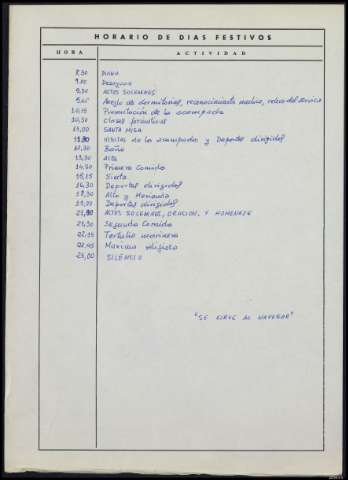 HORARIO DE DIAS FESTIVOS
HORA ACTIVIDAD
8,30 DIANA
9,00 Desayuno
9,30 ACTOS SOLEMNES
9,45 Arreglo de dormitorios, reconocimiento medico, relevo del servicio
10,15 Presentación de la acampada
10,30 Clases formativas
11,00 SANTA MISA
11,30 VISITAS de los acampados y Deportes dirigidos
12,30 Baño
13,30 Alto
14,00 Primera Comida
15,15 Siesta
16,30 Deportes dirigidos
18,30 Alto y Merienda
19,00 Deportes dirigidos
21,00 ACTOS SOLEMNES, ORACION, Y HOMENAJE
21,30 Segunda Comida
22,15 Tertulia marinera
22,45 Maxima religiosa
23,00 SILENCIO
"SE SIRVE AL NAVEGAR"